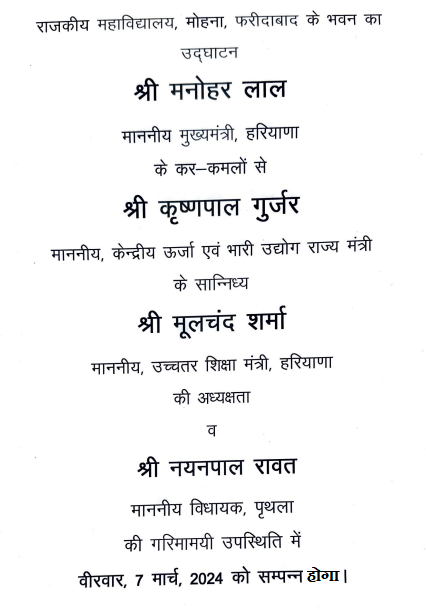 राजकीय महाविद्यालय, मोहना, फरीदाबाद के भवन का
उद्घाटन
श्री मनोहर लाल
माननीय मुख्यमंत्री, हरियाणा
के कर–कमलों से
श्री कृष्णपाल गुर्जर
माननीय, केन्द्रीय ऊर्जा एवं भारी उद्योग राज्य मंत्री
के सान्निध्य
श्री मूलचंद शर्मा
माननीय, उच्चतर शिक्षा मंत्री, हरियाणा
की अध्यक्षता
व
श्री नयनपाल रावत
माननीय विधायक, पृथला
की गरिमामयी उपस्थिति में
वीरवार, 7 मार्च, 2024 को सम्पन्न होगा।